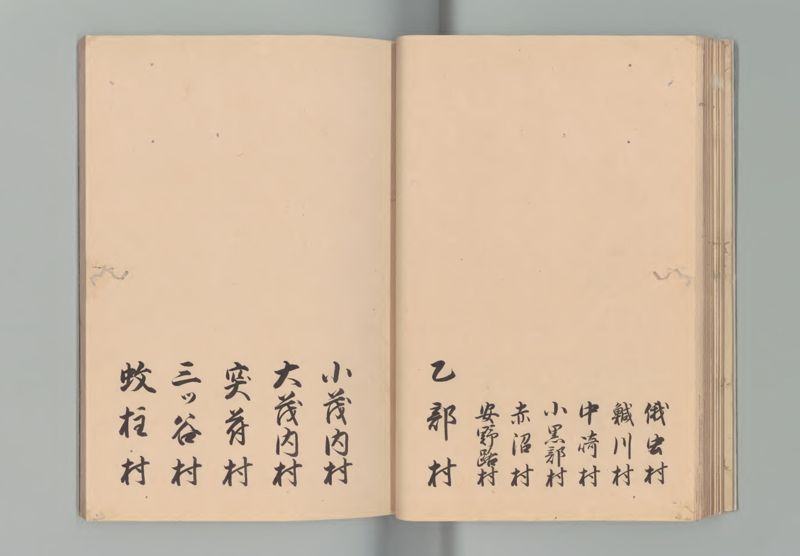 俄虫村
鶉川村
中崎村
小黒部村
赤沼村
安野路村
乙部村
小茂内村
大茂内村
突符村
三ッ谷村
蚊柱村